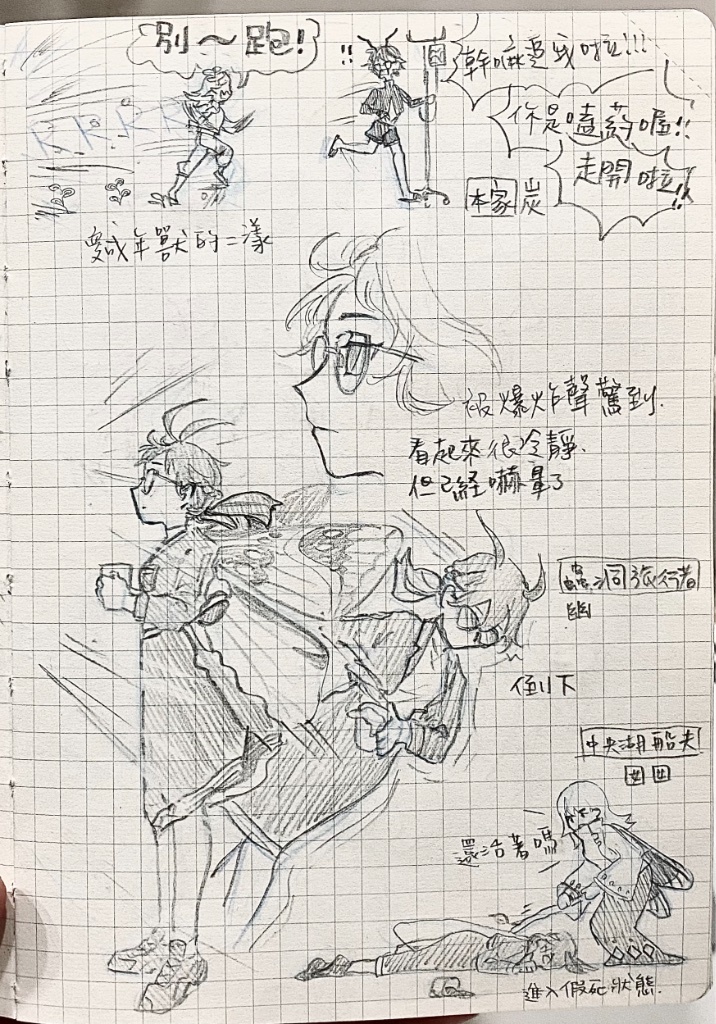 別～跑!
!!
幹嘛追我啦!!!
你是嗑葯喔!!
走開啦!!
KKKK
本家 炭
變成年獸的二漾
被爆炸聲驚到.
看起來很冷靜.
但已經嚇暈了
蟲洞旅行者
幽
倒下
中央湖船夫
囧囧
還活著嗎
進入假死狀態.